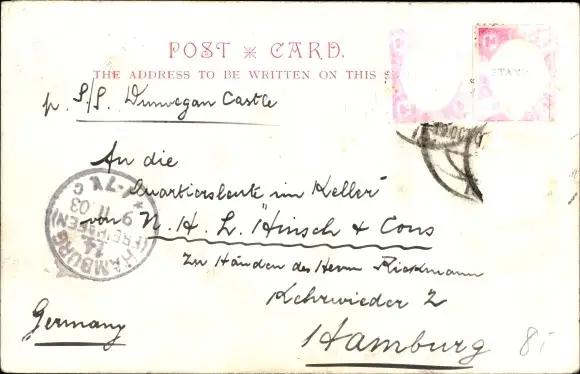 POST CARD.
THE ADDRESS TO BE WRITTEN ON THIS S
STAMP
p. S/S. Dunvegan Castle
An die
Quartiersleute im Keller
von N. H. L. Hinsch & Cons
Zu Händen des Herrn Rickmann
Kehrwieder 2
Hamburg
Germany
HAMBURG
(FREIHAFEN)
14
9 11 03
* 1-7 N. C
85